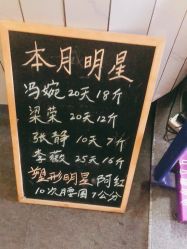 本月明星
冯婉 20天18斤
梁荣 20天12斤
张静 10天7斤
李薇 25天16斤
塑形明星 阿红
10次腰围7公分